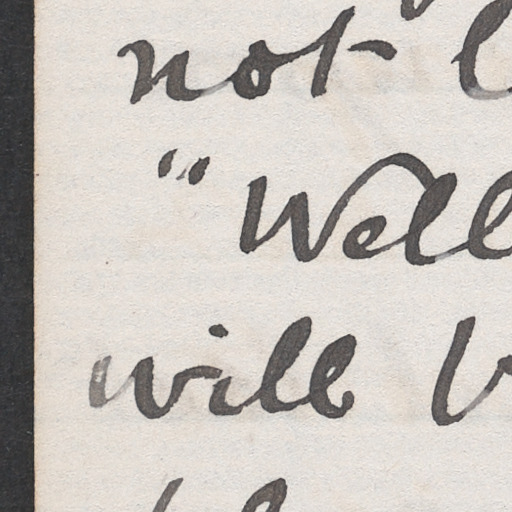 not
"Well
will